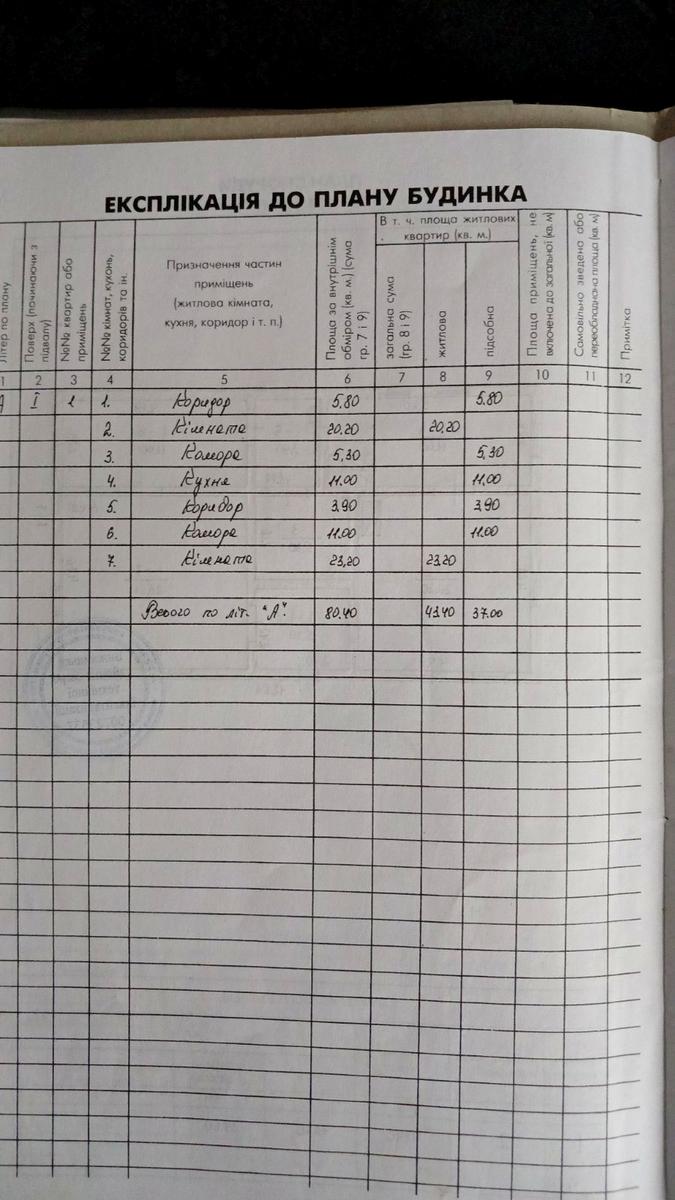 ЕКСПЛІКАЦІЯ ДО ПЛАНУ БУДИНКА
Літер по плану
Поверх (починаючи з підвалу)
№№ квартир або приміщень
№№ кімнат, кухонь, коридорів та ін.
Призначення частин
приміщень
(житлова кімната,
кухня, коридор і т. п.)
Площа за внутрішнім обміром (кв. м.) (сума гр. 7 і 9)
В т. ч. площа житлових
квартир (кв. м.)
загальна сума (гр. 8 і 9)
житлова
підсобна
Площа приміщень, не включена до загальної (кв. м)
Самовільно зведена або переобладнана площа (кв. м)
Примітка
1 2 3 4 5 6 7 8 9 10 11 12
А І 1 1. Коридор 5,80 5.80
2. Кімната 20,20 20,20
3. Комора 5,30 5,30
4. Кухня 11.00 11.00
5. Коридор 3,90 3,90
6. Комора 11.00 11.00
7. Кімната 23,20 23.20
Всього по літ. "А". 80.40 43.40 37.00